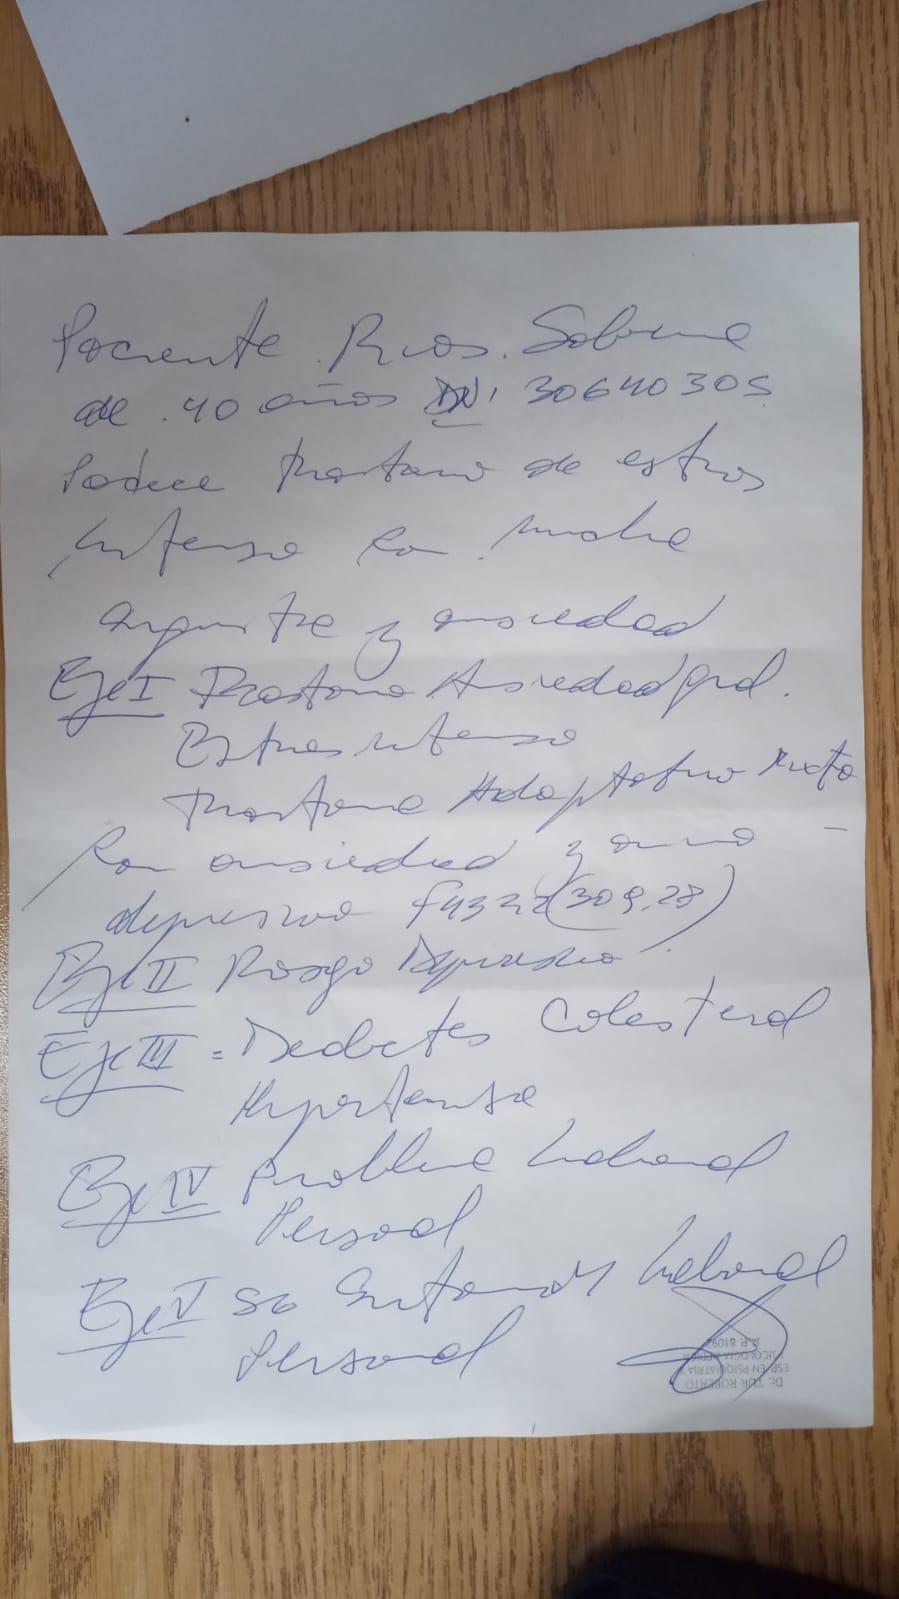 Paciente Rios Sabrina
de 40 años DNI 30640305
Padece trastorno de estres
intenso con mucha
angustia y ansiedad
Eje I Trastorno Ansiedad
Estres intenso
trastorno Adaptativo Mixto
con ansiedad y animo
depresivo F4322 (309.28)
Eje II Rasgo Depresivo
Eje III = Diabetes Colesterol
Hipertensa
Eje IV Problema Laboral
Personal
Eje V Laboral
Personal
Dr. TUR ROBERTO
ESP. EN PSIQUIATRIA
PSICOLOGIA MEDICA